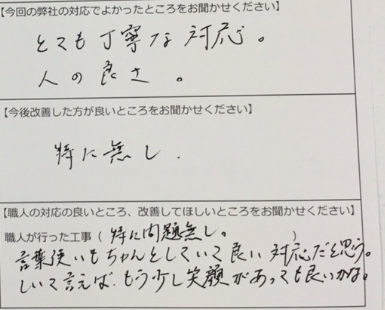 【今回の弊社の対応でよかったところをお聞かせください】
とても丁寧な対応。
人の良さ。
【今後改善した方が良いところをお聞かせください】
特に無し.
【職人の対応の良いところ、改善してほしいところをお聞かせください】
職人が行った工事（特に問題無し。）
言葉使いもちゃんとしていて良い対応だと思う。
しいて言えば、もう少し笑顔があっても良いかな。